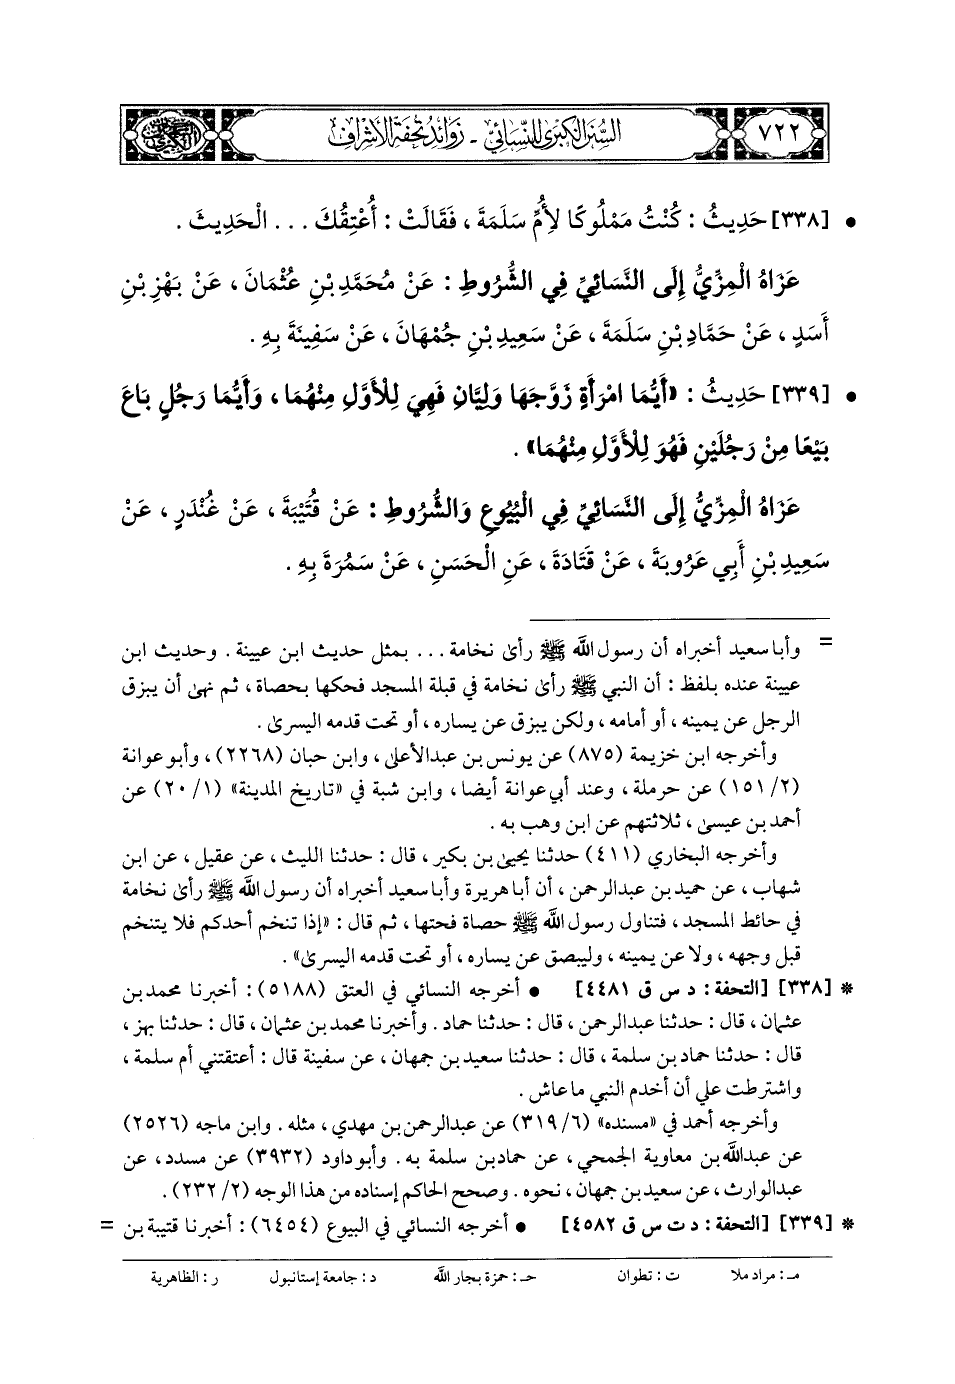 ٧٢٢
السنن الكبرى للنسائي - زوائد تحفة الأشراف
• [٣٣٨] حَدِيثُ : كُنْتُ مَمْلُوكًا لِأُمِّ سَلَمَةَ ، فَقَالَتْ : أُعْتِقُكَ ... الْحَدِيثَ .
عَزَاهُ الْمِزِّيُّ إِلَى النَّسَائِيِّ فِي الشُّرُوطِ : عَنْ مُحَمَّدِ بْنِ عُثْمَانَ ، عَنْ بَهْزِ بْنِ
أَسَدٍ ، عَنْ حَمَّادِ بْنِ سَلَمَةَ ، عَنْ سَعِيدِ بْنِ جُمْهَانَ ، عَنْ سَفِينَةَ بِهِ .
• [٣٣٩] حَدِيثُ : «أَيُّمَا امْرَأَةٍ زَوَّجَهَا وَلِيَّانِ فَهِيَ لِلْأَوَّلِ مِنْهُمَا ، وَأَيُّمَا رَجُلٍ بَاعَ
بَيْعًا مِنْ رَجُلَيْنِ فَهُوَ لِلْأَوَّلِ مِنْهُمَا» .
عَزَاهُ الْمِزِّيُّ إِلَى النَّسَائِيِّ فِي الْبُيُوعِ وَالشُّرُوطِ : عَنْ قُتَيْبَةَ ، عَنْ غُنْدَرٍ ، عَنْ
سَعِيدِ بْنِ أَبِي عَرُوبَةَ ، عَنْ قَتَادَةَ ، عَنِ الْحَسَنِ ، عَنْ سَمُرَةَ بِهِ .
= وأبا سعيد أخبراه أن رسول الله ﷺ رأى نخامة ... بمثل حديث ابن عيينة . وحديث ابن
عيينة عنده بلفظ : أن النبي ﷺ رأى نخامة في قبلة المسجد فحكها بحصاة ، ثم نهى أن يبزق
الرجل عن يمينه ، أو أمامه ، ولكن يبزق عن يساره ، أو تحت قدمه اليسرى .
وأخرجه ابن خزيمة (٨٧٥) عن يونس بن عبدالأعلى ، وابن حبان (٢٢٦٨) ، وأبو عوانة
(٢/ ١٥١) عن حرملة ، وعند أبي عوانة أيضا ، وابن شبة في «تاريخ المدينة» (١/ ٢٠) عن
أحمد بن عيسى ، ثلاثتهم عن ابن وهب به .
وأخرجه البخاري (٤١١) حدثنا يحيى بن بكير ، قال : حدثنا الليث ، عن عقيل ، عن ابن
شهاب ، عن حميد بن عبدالرحمن ، أن أبا هريرة وأبا سعيد أخبراه أن رسول الله ﷺ رأى نخامة
في حائط المسجد ، فتناول رسول الله ﷺ حصاة فحتها ، ثم قال : «إذا تنخم أحدكم فلا يتنخم
قبل وجهه ، ولا عن يمينه ، وليبصق عن يساره ، أو تحت قدمه اليسرى» .
* [٣٣٨] [التحفة : د س ق ٤٤٨١] • أخرجه النسائي في العتق (٥١٨٨) : أخبرنا محمد بن
عثمان ، قال : حدثنا عبدالرحمن ، قال : حدثنا حماد . وأخبرنا محمد بن عثمان ، قال : حدثنا بهز ،
قال : حدثنا حماد بن سلمة ، قال : حدثنا سعيد بن جمهان ، عن سفينة قال : أعتقتني أم سلمة ،
واشترطت علي أن أخدم النبي ما عاش .
وأخرجه أحمد في «مسنده» (٦/ ٣١٩) عن عبدالرحمن بن مهدي ، مثله . وابن ماجه (٢٥٢٦)
عن عبدالله بن معاوية الجمحي ، عن حماد بن سلمة به . وأبو داود (٣٩٣٢) عن مسدد ، عن
عبدالوارث ، عن سعيد بن جمهان ، نحوه . وصحح الحاكم إسناده من هذا الوجه (٢/ ٢٣٢) .
* [٣٣٩] [التحفة : د ت س ق ٤٥٨٢] • أخرجه النسائي في البيوع (٦٤٥٤) : أخبرنا قتيبة بن =
مـ : مراد ملا ت : تطوان حـ : حمزة بجار الله د : جامعة إستانبول ر : الظاهرية